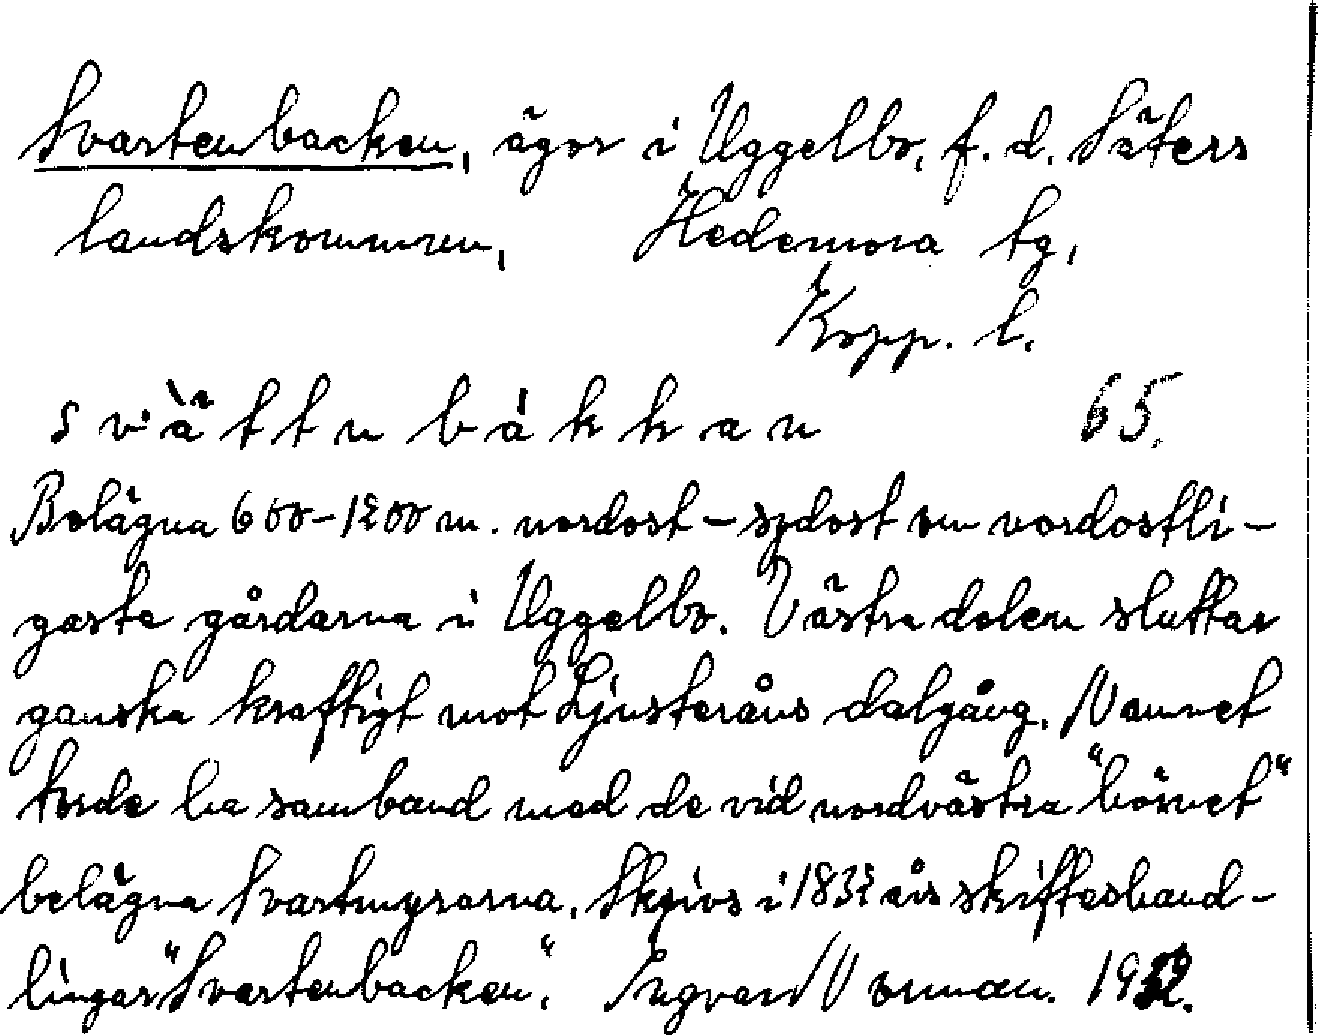 Svartenbacken, ägor i Uggelbo, f. d. Säters
landskommun, Hedemora tg,
Kopp. l.
s v ä t t n b à k k a n 65.
Belägna 600-1200 m. nordost - sydost om nordostli-
gaste gårdarna i Uggelbo. Västra delen sluttar
ganska kraftigt mot Ljusteråns dalgång. Namnet
torde ha samband med de vid nordvästra "hörnet"
belägna Svartmyrarna. Skrivs i 1832 års skifteshand-
lingar "Svartenbacken". Ingvar Norman.